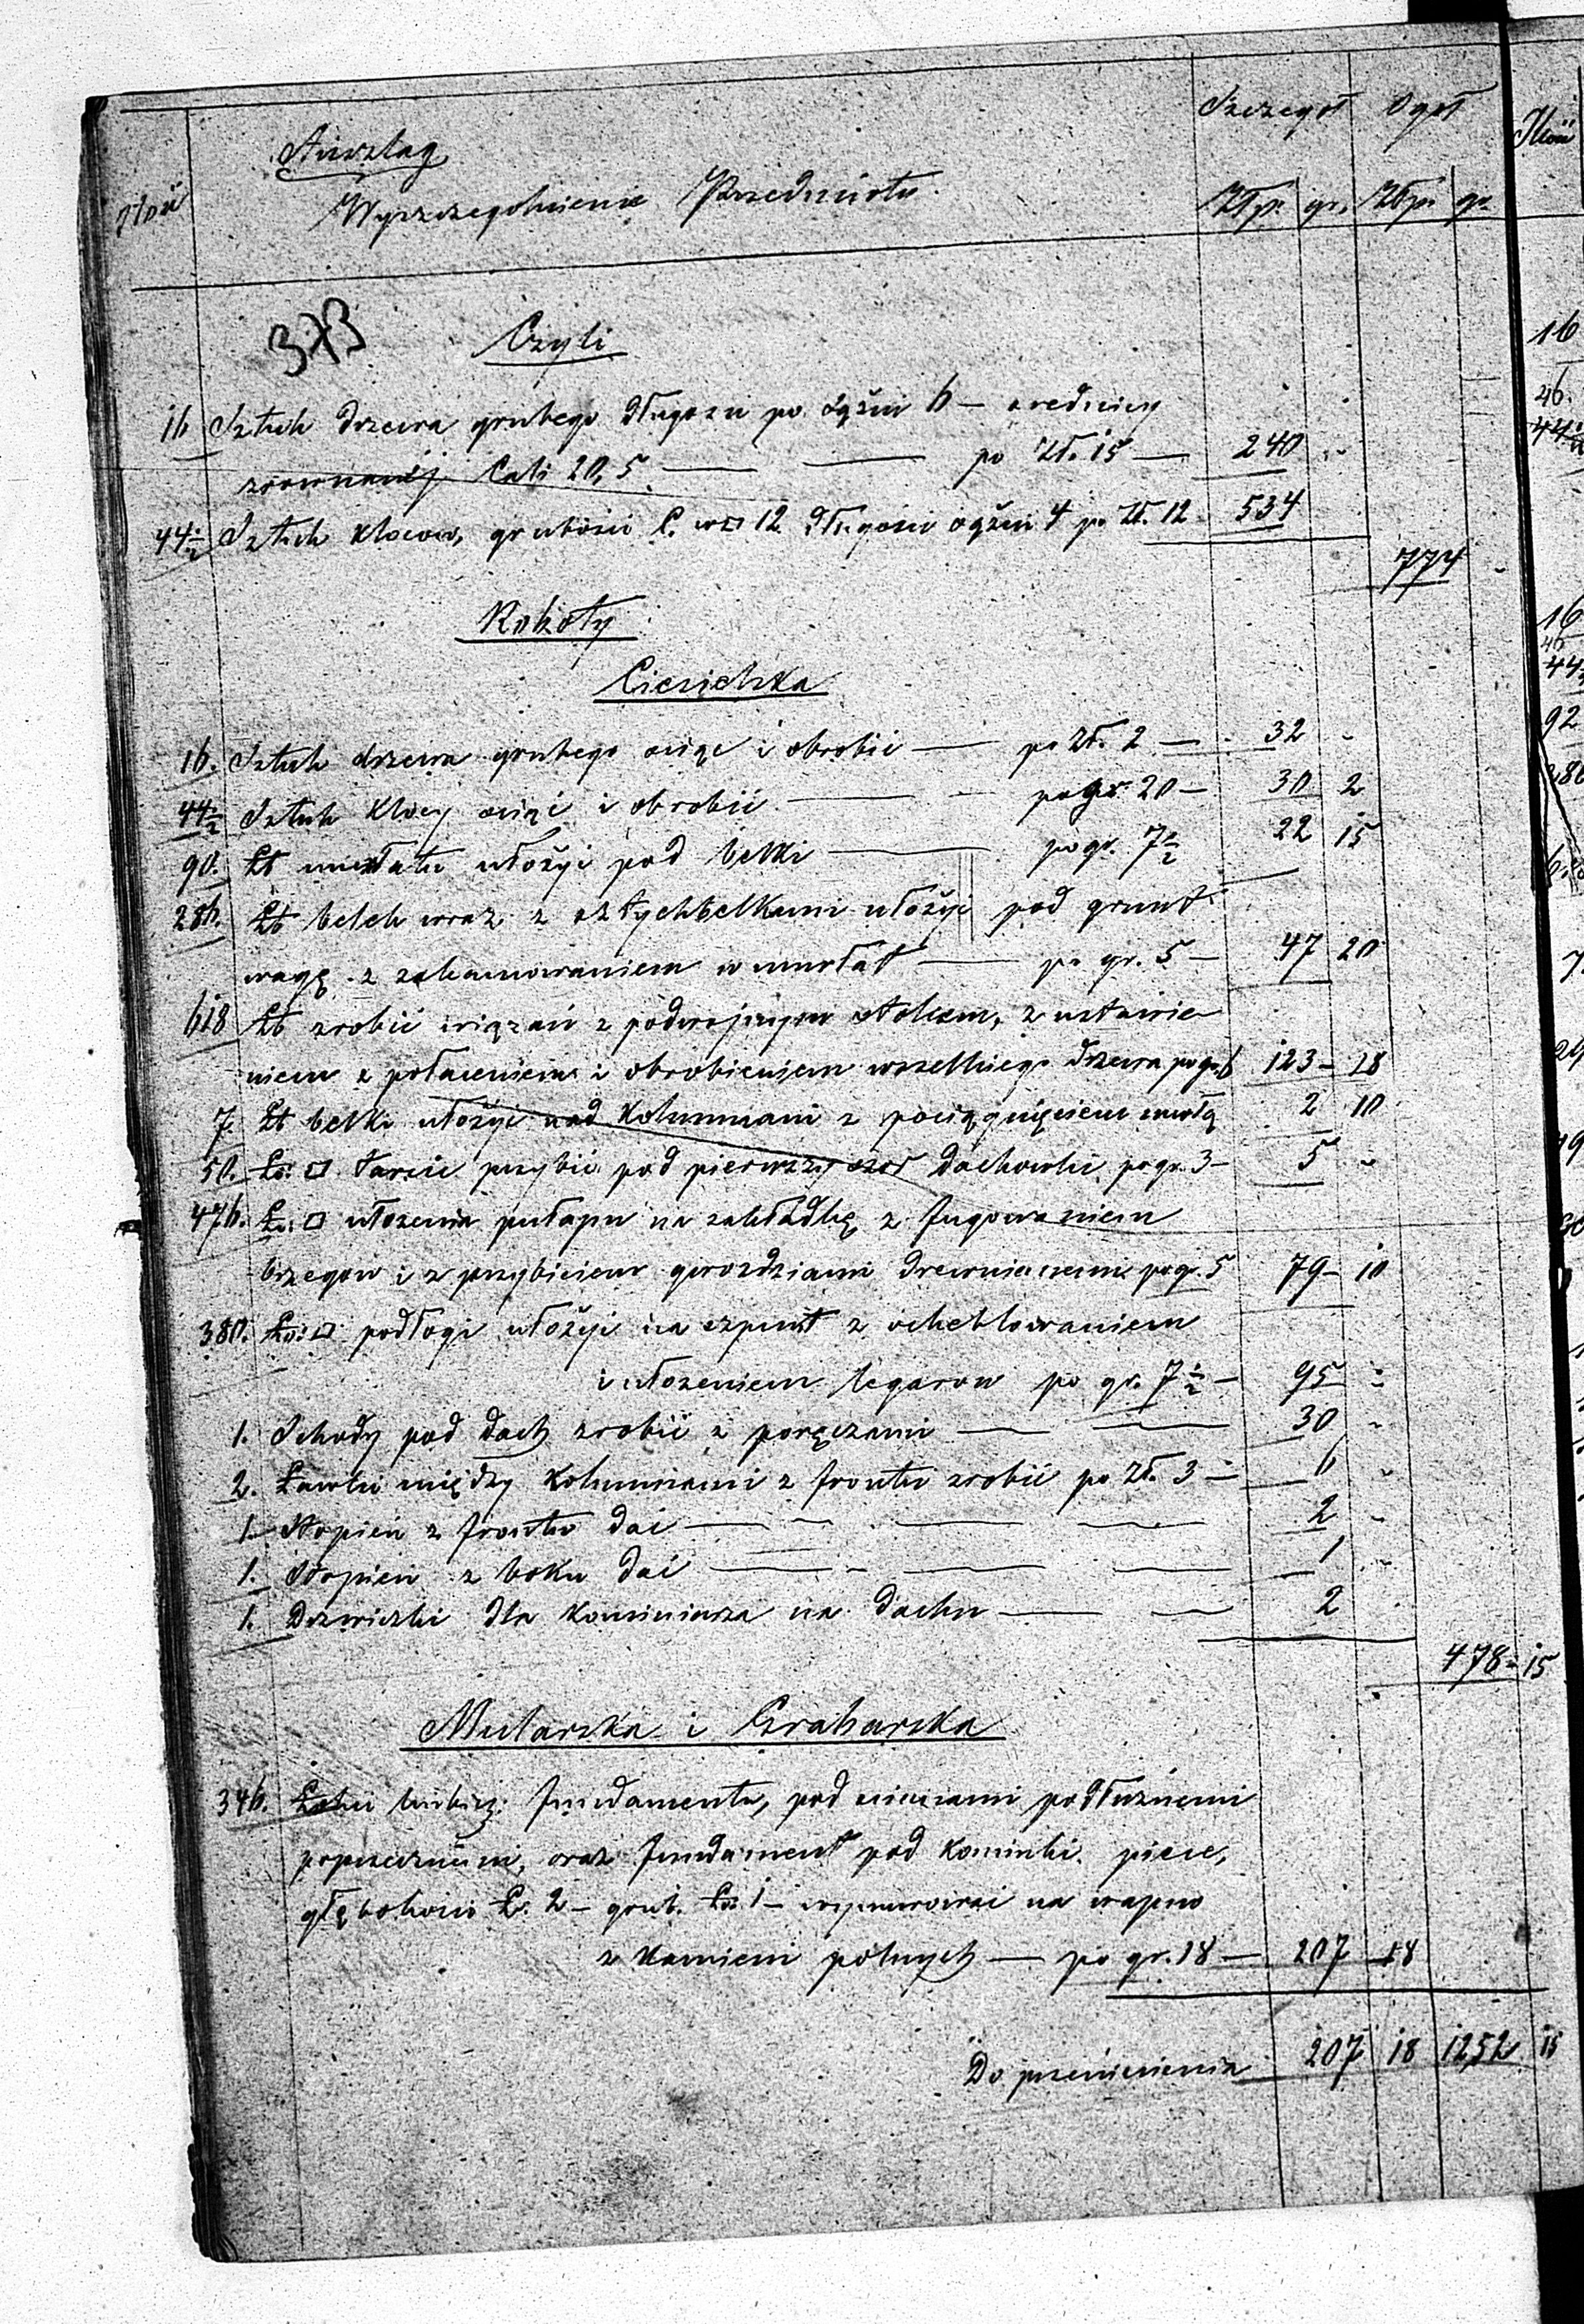 Szczegoł Ogoł
Anszlag
Ilość Wyszczegolnienie Przedmiotu
Złp. gr. Złp. gr.
373
Czyli
16 Sztuk drzewa grubego długości po sążni 6 – srednicy
zrownanéj Cali 20,5. — — po Zł. 15 — 240 "
44 1/2 Sztuk klocow, grubości C. w □ 12 długości sążni 4 po Zł. 12 534
774 -
Roboty
Ciesielska
16. Sztuk drzewa grubego ciąć i obrobić — po Zł. 2 — 32 -
44 1/2 Sztuk klocy ciąć i obrobić — po gr. 20 — 30 2
90. Łt murłatu ułożyć pod belki — po gr. 7 1/2 22 15
286. Łt belek wraz z sztychbelkami ułożyć pod grunt
wagę z zakamowaniem w murłat — po gr. 5 – 47 20
618 Łt zrobić wiązań z podwojnym stolcem, z ustawie
niem z połaceniem i obrobieniem wszelkiego drzewa po gr. 6 123 – 18
7. Łt belki ułożyć nad kolumnami z pociągnięciem 2 10
50. Ło: □ tarcic przybić pod pierwszy szor dachowki po gr. 3 – 5 "
476. Ło: □ ułożenia pułapu na zakładkę z fugowaniem
brzegow i z przybiciem gwozdziami drewnianemi po gr. 5 79 – 10
380. Ło: □ podłogi ułożyć na szpunt z oheblowaniem
i ułożeniem legarow po gr. 7 1/2 – 95 "
1. Schody pod dach zrobić z poręczami — — 30 "
2. Ławki między kolumnami z frontu zrobić po Zł. 3 – 6 "
1 Stopień z frontu dać — — — 2 "
1. Stopień z boku dać — — — 1 "
1. Drzwiczki dla kominiarza na dachu — — 2
478 " 15
Mularska i Grabarska
346. Łokci kubicz: fundamentu, pod scianami podłużnemi
poprzecznemi, oraz fundament pod kominki, piece,
głębokości Ł. 2 – grub. Ło. 1 – wymurować na wapno
z kamieni polnych — po gr. 18 — 207 18
Do przeniesienia 207 18 1252 15